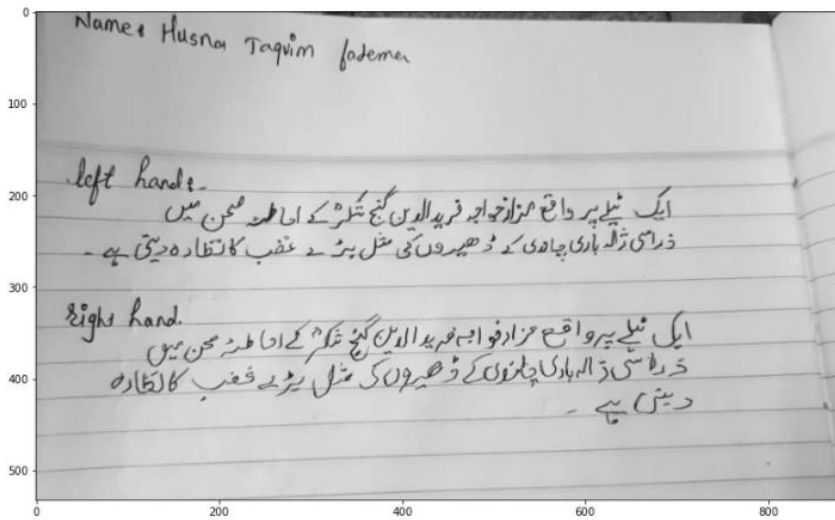 Name: Husna Taqvim fatema
left hand:-
ایک ٹیلے پر واقع مزار خواجہ فریدالدین گنج شکرؒ کے احاطہ صحن میں
ذراسی ژالہ باری چاندی کے ڈھیروں کی مثل بڑے غضب کا نظارہ دیتی ہے ۔
right hand.
ایک ٹیلے پر واقع مزار خواجہ فریدالدین گنج شکرؒ کے احاطہ صحن میں
ذراسی ژالہ باری چاندی کے ڈھیروں کی مثل بڑے غضب کا نظارہ
دیتی ہے ۔